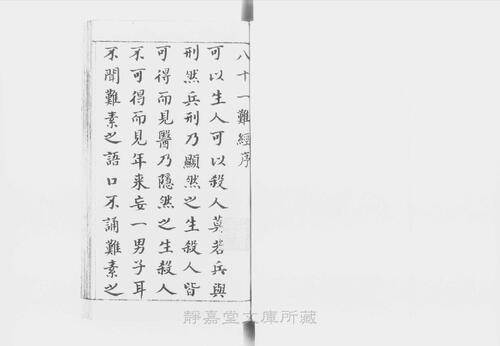 八十一難經序
可以生人可以殺人莫若兵與
刑然兵刑乃顯然之生殺人皆
可得而見醫乃隱然之生殺人
不可得而見年来妄一男子耳
不聞難素之語口不誦難素之
靜嘉堂文庫所藏